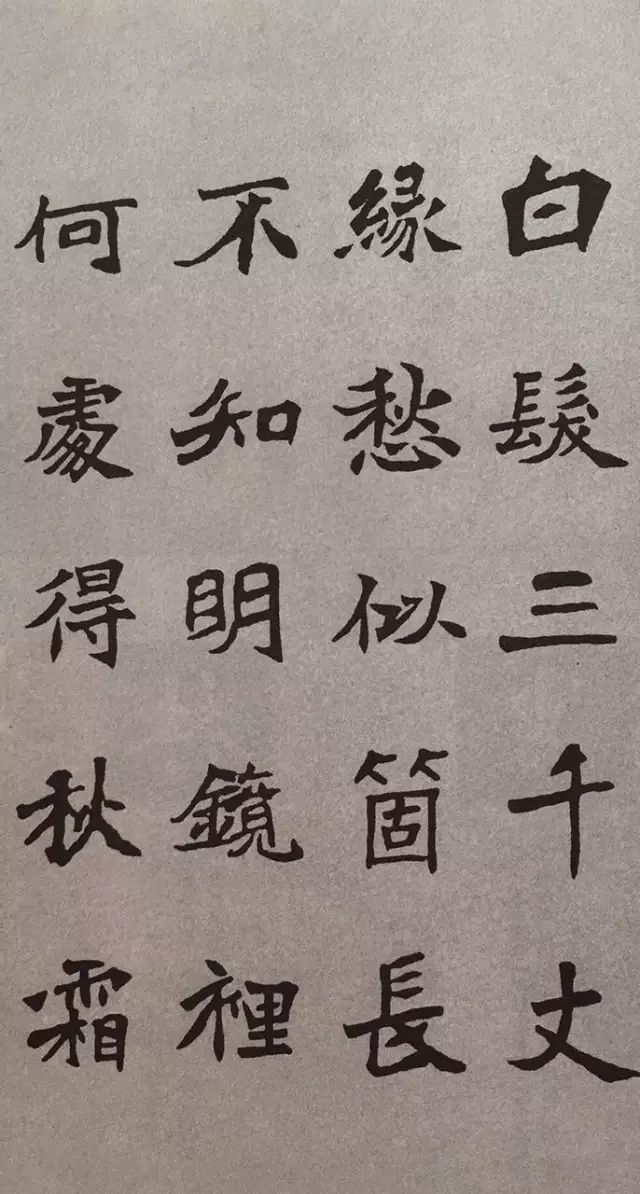 白髮三千丈
緣愁似箇長
不知明鏡裡
何處得秋霜